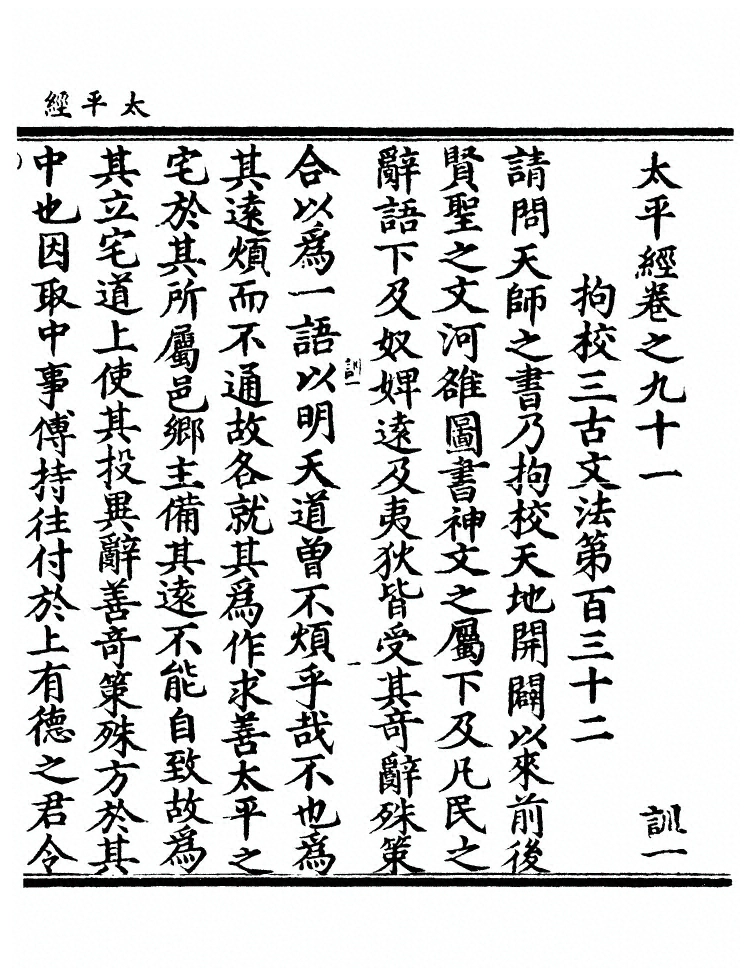 太平經
太平經卷之九十一 訓一
拘校三古文法第百三十二
請問天師之書乃拘校天地開闢以來前後
賢聖之文河雒圖書神文之屬下及凡民之
辭語下及奴婢遠及夷狄皆受其奇辭殊策
訓一 一
合以爲一語以明天道曾不煩乎哉不也爲
其遠煩而不通故各就其爲作求善太平之
宅於其所屬邑鄉主備其遠不能自致故爲
其立宅道上使其投異辭善竒策殊方於其
中也因取中事傅持往付於上有德之君令